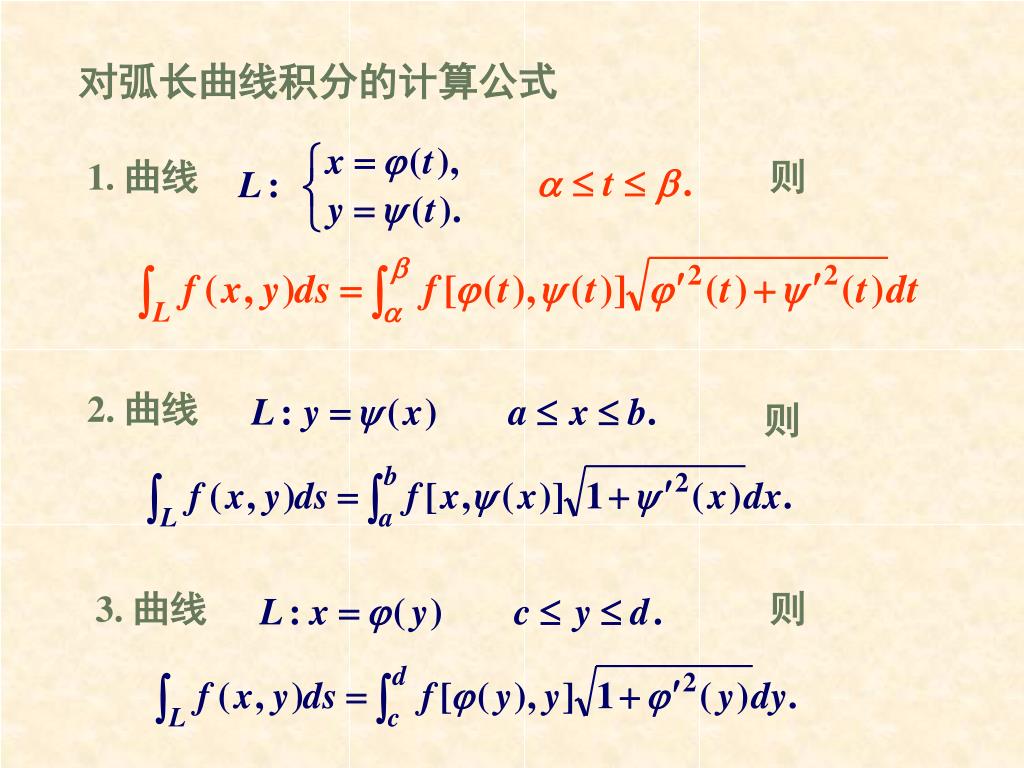 对弧长曲线积分的计算公式
1. 曲线 L : { x = φ(t), y = ψ(t). α ≤ t ≤ β. 则
∫_L f(x, y)ds = ∫_α^β f[φ(t), ψ(t)]√(φ′²(t) + ψ′²(t))dt
2. 曲线 L : y = ψ(x) a ≤ x ≤ b. 则
∫_L f(x, y)ds = ∫_a^b f[x, ψ(x)]√(1 + ψ′²(x))dx.
3. 曲线 L : x = φ(y) c ≤ y ≤ d. 则
∫_L f(x, y)ds = ∫_c^d f[φ(y), y]√(1 + φ′²(y))dy.